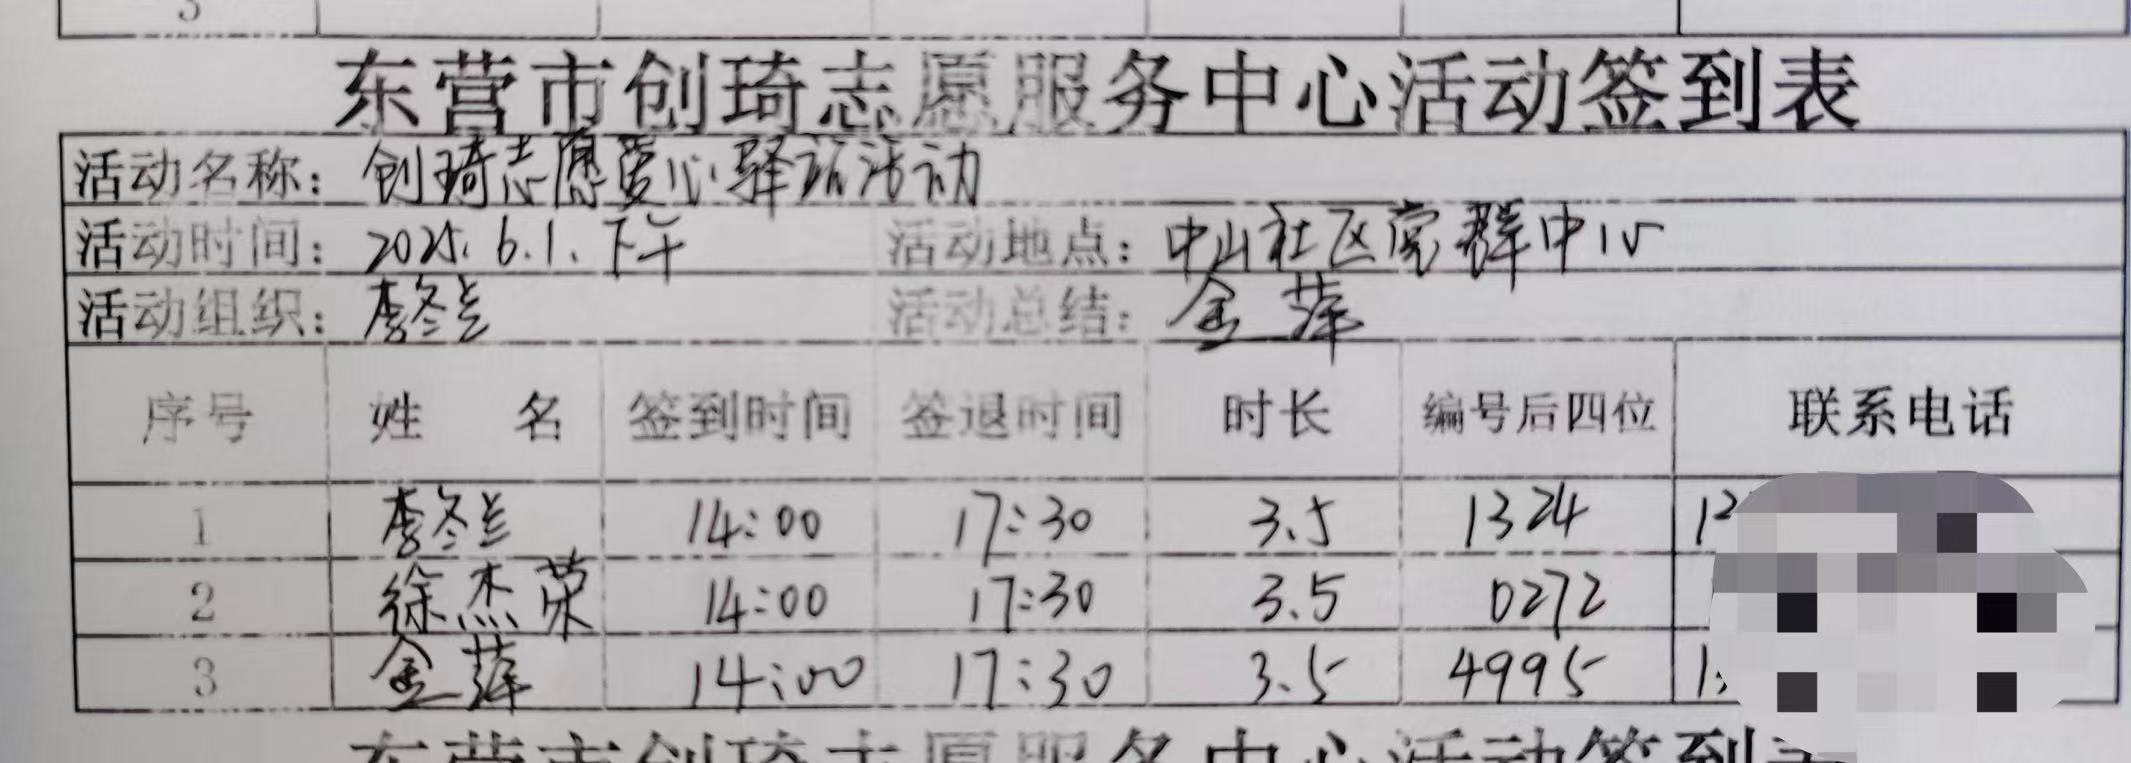 3
东营市创琦志愿服务中心活动签到表
活动名称：创琦志愿爱心驿站活动
活动时间：2025.6.1.下午 活动地点：中山社区党群中心
活动组织：李冬兰 活动总结：金萍
序号 姓名 签到时间 签退时间 时长 编号后四位 联系电话
1 李冬兰 14:00 17:30 3.5 1324
2 徐杰荣 14:00 17:30 3.5 0272
3 金萍 14:00 17:30 3.5 4995
东营市创琦志愿服务中心活动签到表